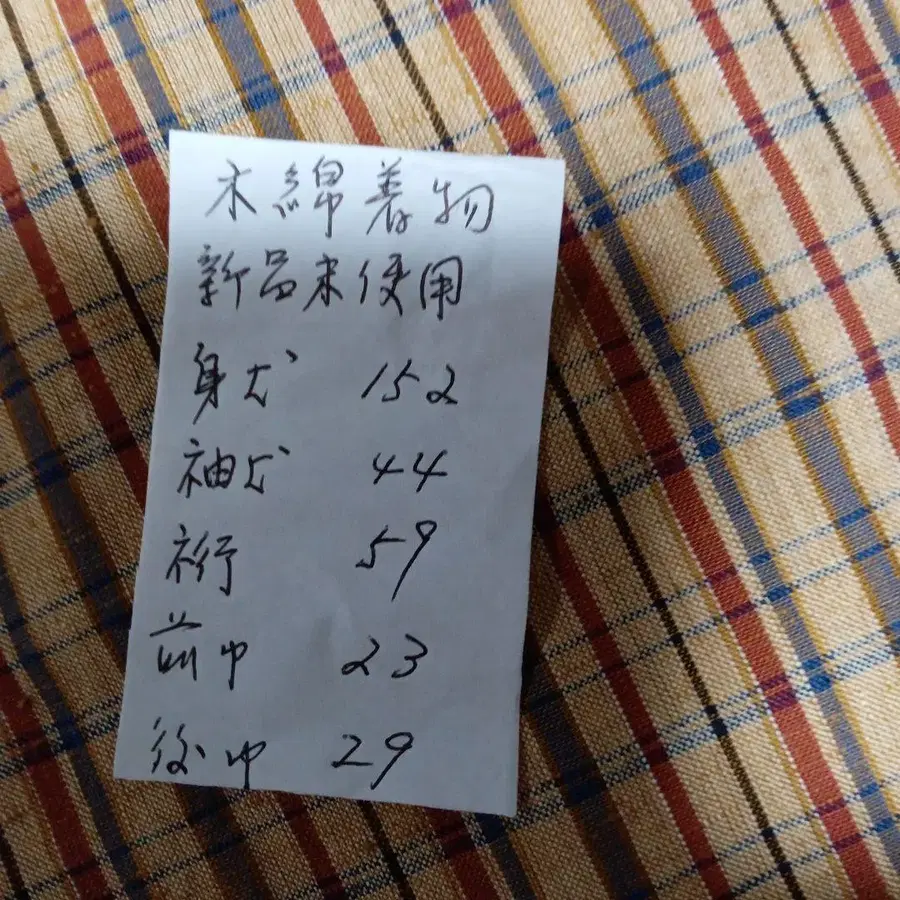 木綿着物
新品未使用
身丈 152
袖丈 44
裄 59
前巾 23
後巾 29